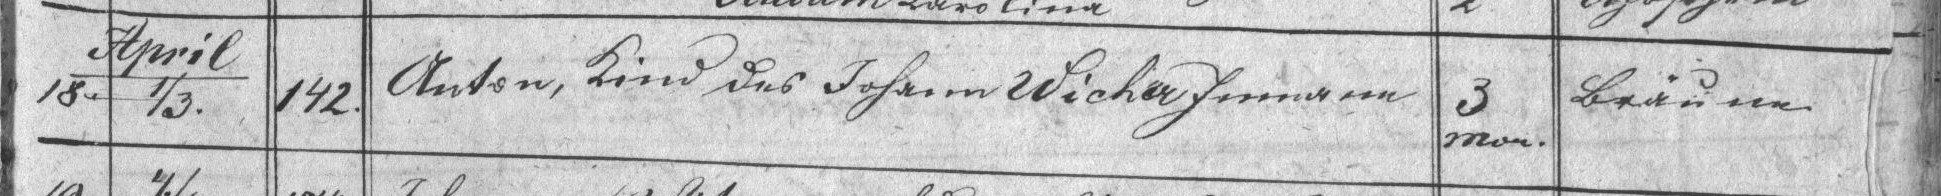 Karolina 2
April
18. 1/3. 142. Anton, Kind des Johann Wicha Inmann 3 Bräune
Mon.